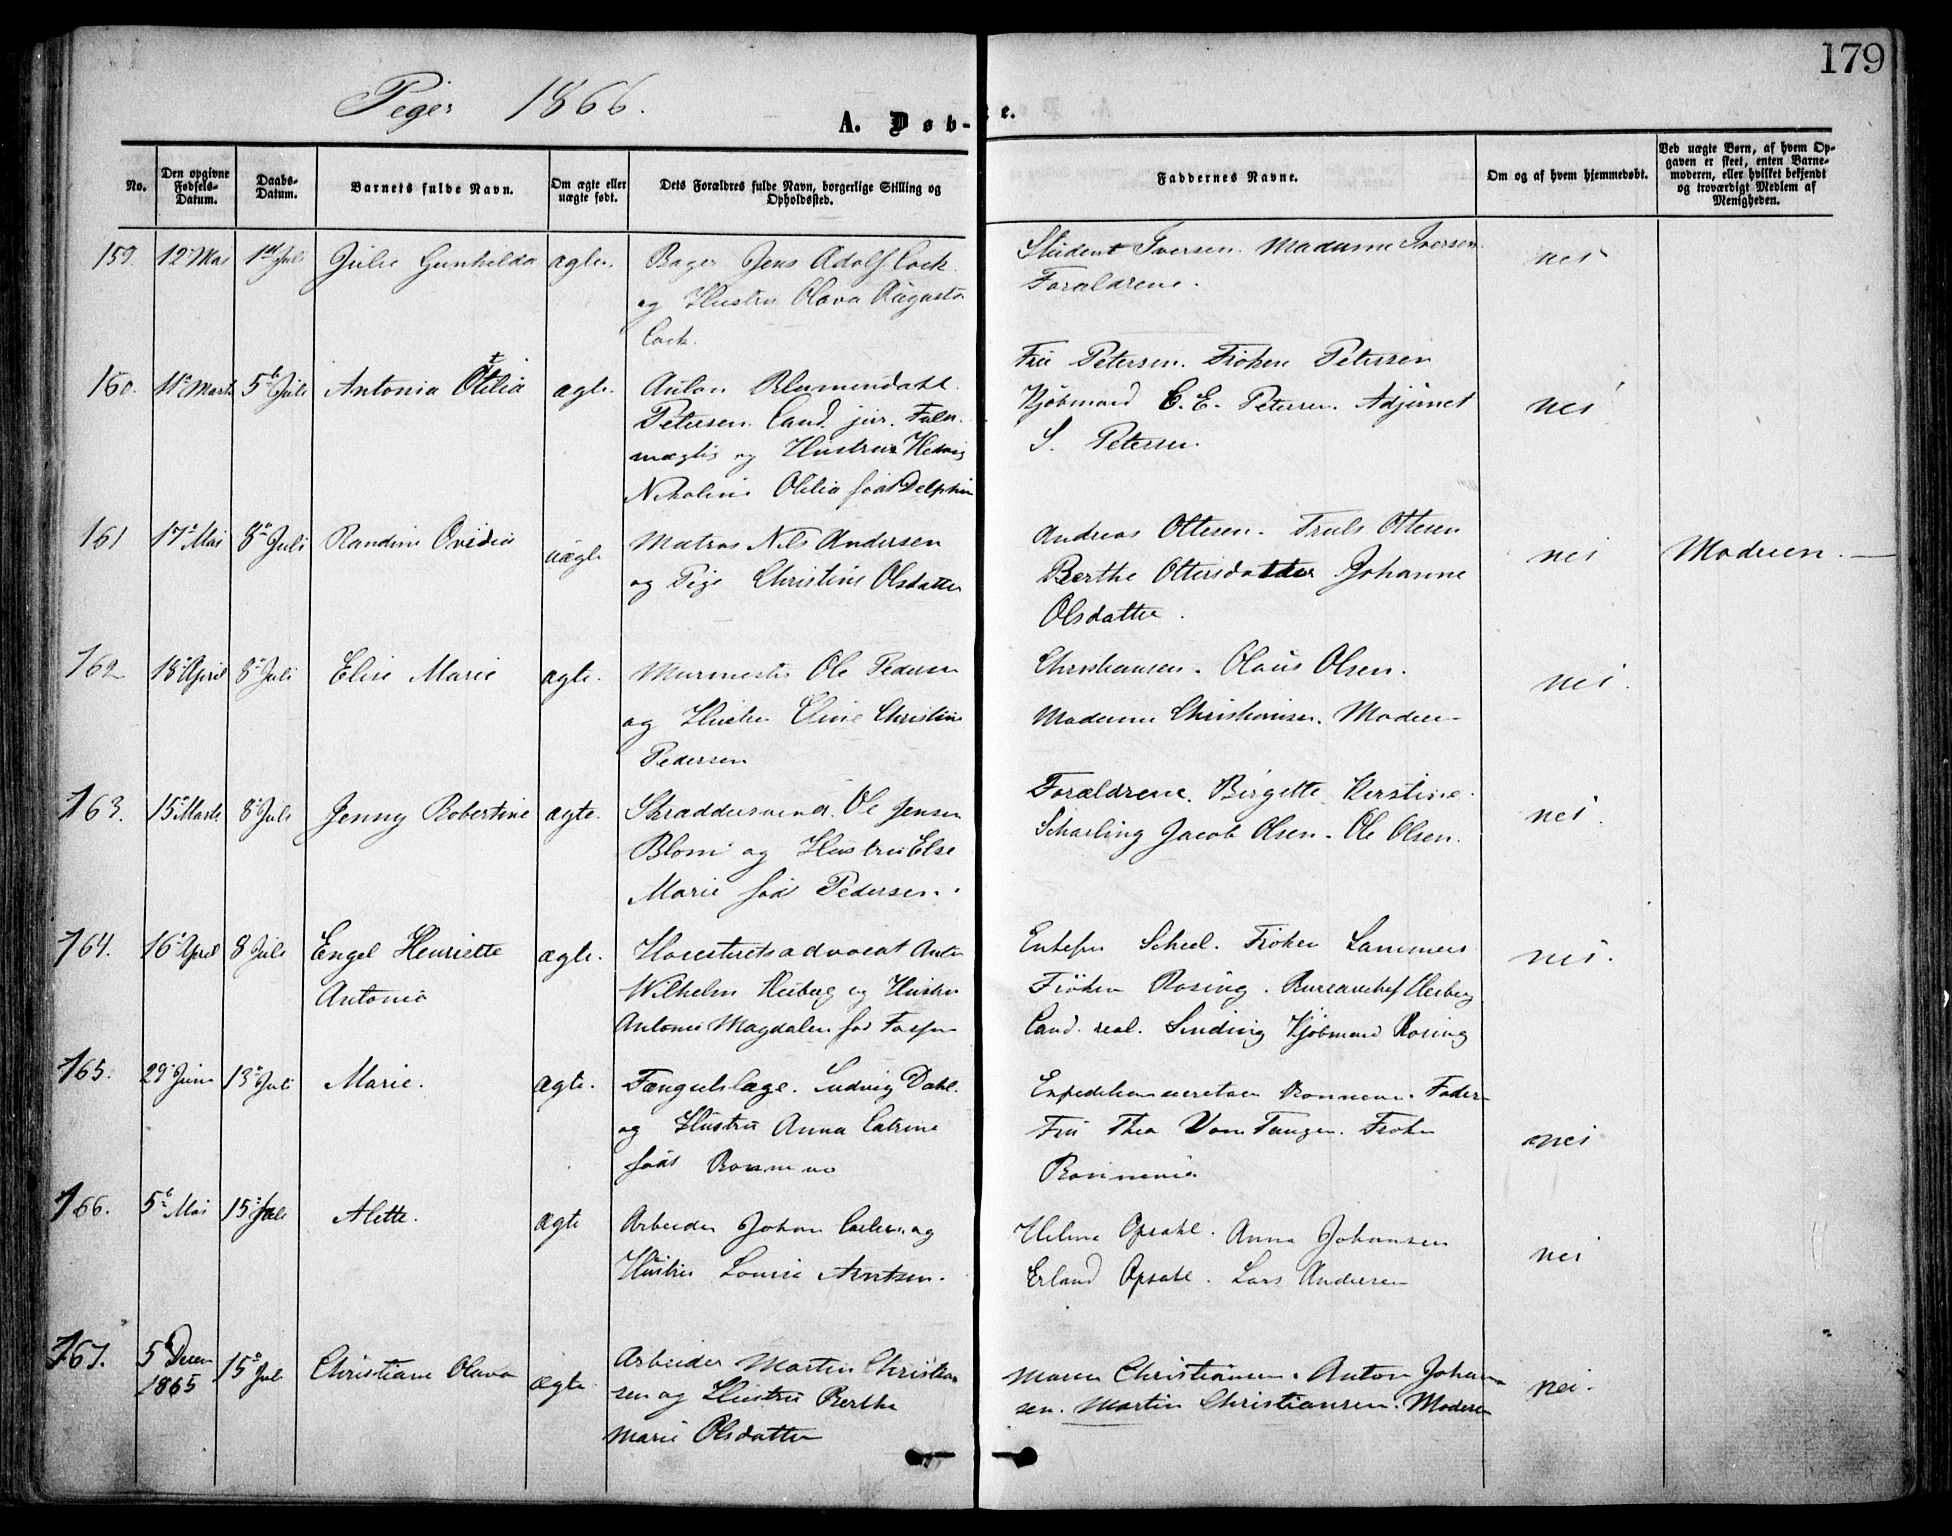 179
Piger 1866.
A. Døb-
te.
No.
Den opgivne Fødsels-Datum.
Daabs-Datum.
Barnets fulde Navn.
Om ægte eller uægte født.
Dets Forældres fulde Navn, borgerlige Stilling og Opholdssted.
Faddernes Navne.
Om og af hvem hjemmedøbt.
Ved uægte Børn, af hvem Opgaven er skeet, enten Barnemoderen, eller hvilket bekjendt og troværdigt Medlem af Menigheden.
159. 12 Mai 1st Juli Julie Gunhilda ægte. Bager Jens Adolf Cock Student Iversen. Madame Iversen. nei
og Hustru Olava Augusta Forældrene.
Cock.
Fru Petersen. Frøken Petersen
160. 11 Marts 5te Juli Antonia Otilia ægte. Anton Blumendahl Kjøbmand C. E. Petersen. Adjunct nei
Petersen. Cand. jur. Fuld- S. Petersen.
mægtig og Hustru Hedvig
Nikoline Otilia født Delphin
161 17 Mai 8 Juli Randine Ovidia uægte Matros Nils Andersen Andreas Ottesen. Truls Ottesen nei Moderen.
og Pige Christine Olsdatter Berthe Ottersdatter. Johanne
Olsdatter.
162 18 April 8 Juli Elise Marie ægte. Murmester Ole Pedersen Christiansen. Olaus Olsen. nei.
og Hustru Eline Christine Madame Christiansen. Moderen
Pedersen
163. 15 Marts 8 Juli Jenny Robertine ægte. Skræddersvend. Ole Jensen Forældrene. Birgette Kerstine nei.
Blom og Hustru Else Scharling Jacob Olsen. Ole Olsen.
Marie fød Pedersen.
164. 16 April 8 Juli Engel Henriette ægte. Høiesteretsadvocat Anton Enkefru Scheel. Frøken Lammers nei.
Antonia Wilhelm Heiberg og Hustru Frøken Rosing. Bureauchef Heiberg
Antonie Magdalen fød Cand. real. Sinding Kjøbmand Rosing
165. 29 Juni 13 Juli Marie. ægte. Fængselslæge. Ludvig Dahl. Expeditionssecretær Fader
og Hustru Anna Catrine Fru Thea Von Tangen. Frøken nei
født
166. 5te Mai 15 Juli Alette. ægte Arbeider Johan og Helene Opsahl. Anna Johansen nei
Hustru Louise Arntsen. Erland Opsahl. Lars Andersen
167. 5 Decem 1865 15 Jul Christiane Olava ægte. Arbeider Martin Christian- Maren Christiansen. Anton Johan- nei.
sen og Hustru Berthe sen. Martin Christiansen. Moderen
Marie Olsdatter